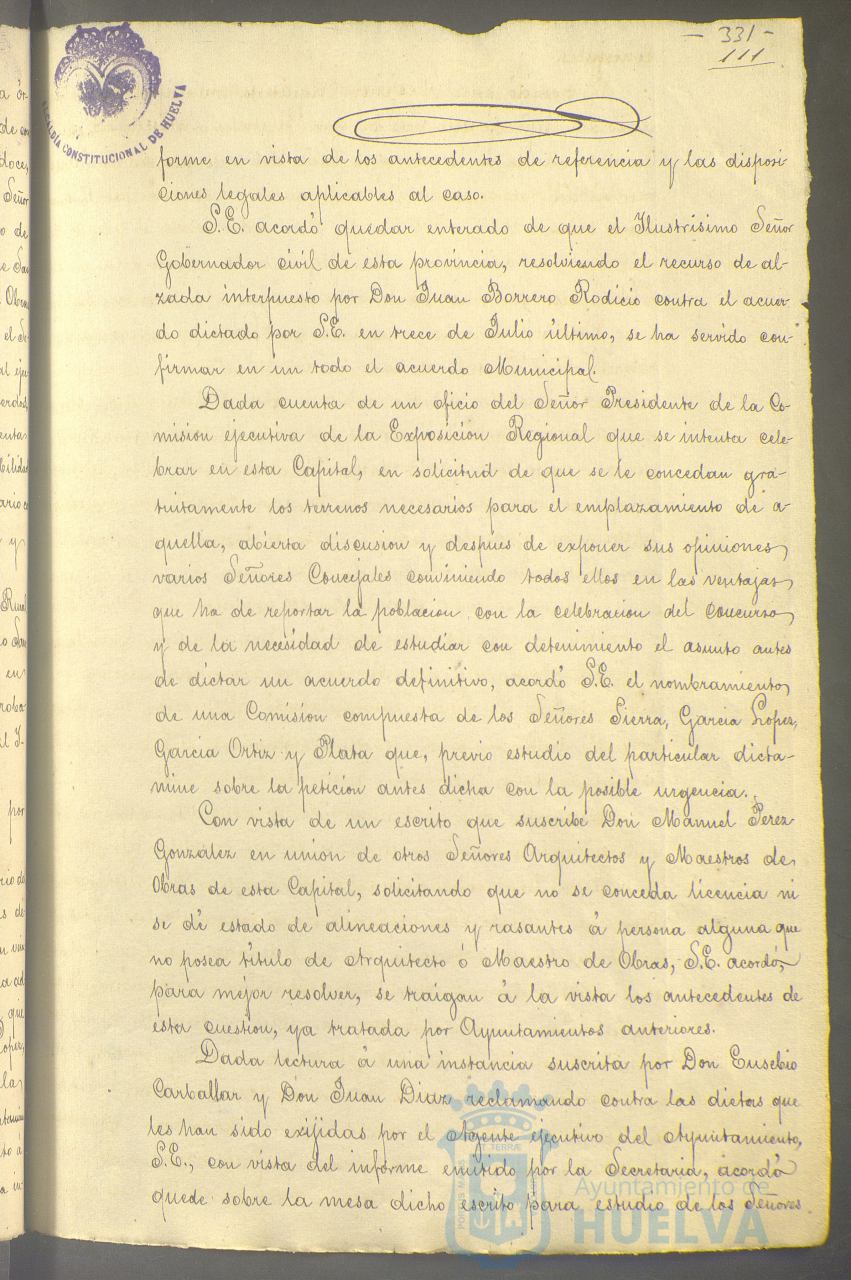 - 331 -
111
ALCALDÍA CONSTITUCIONAL DE HUELVA
forme en vista de los antecedentes de referencia y las disposi-
ciones legales aplicables al caso.
S.E. acordó quedar enterado de que el Ilustrísimo Señor
Gobernador civil de esta provincia, resolviendo el recurso de al-
zada interpuesto por Don Juan Borrero Rodicio contra el acuer-
do dictado por S.E. en trece de Julio último, se ha servido con-
firmar en un todo el acuerdo Municipal.
Dada cuenta de un oficio del Señor Presidente de la Co-
mision ejecutiva de la Exposición Regional que se intenta cele-
brar en esta Capital, en solicitud de que se le concedan gra-
tuitamente los terrenos necesarios para el emplazamiento de a-
quella, abierta discusion y despues de exponer sus opiniones
varios Señores Concejales conviniendo todos ellos en las ventajas
que ha de reportar la poblacion con la celebracion del concurso
y de la necesidad de estudiar con detenimiento el asunto antes
de dictar un acuerdo definitivo, acordó S.E. el nombramiento
de una Comision compuesta de los Señores Sierra, Garcia Lopez,
García Ortiz y Plata que, previo estudio del particular dicta-
mine sobre la peticion antes dicha con la posible urgencia.
Con vista de un escrito que suscribe Don Manuel Perez
González en union de otros Señores Arquitectos y Maestros de
Obras de esta Capital, solicitando que no se conceda licencia ni
se dé estado de alineaciones y rasantes á persona alguna que
no posea título de Arquitecto ó Maestro de Obras, S.E. acordó,
para mejor resolver, se traigan á la vista los antecedentes de
esta cuestion, ya tratada por Ayuntamientos anteriores.
Dada lectura á una instancia suscrita por Don Eusebio
Carballar y Don Juan Diaz reclamando contra las dietas que
les han sido exijidas por el Agente ejecutivo del Ayuntamiento,
S.E., con vista del informe emitido por la Secretaria, acordó
quede sobre la mesa dicho escrito para estudio de los Señores
Ayuntamiento de
HUELVA